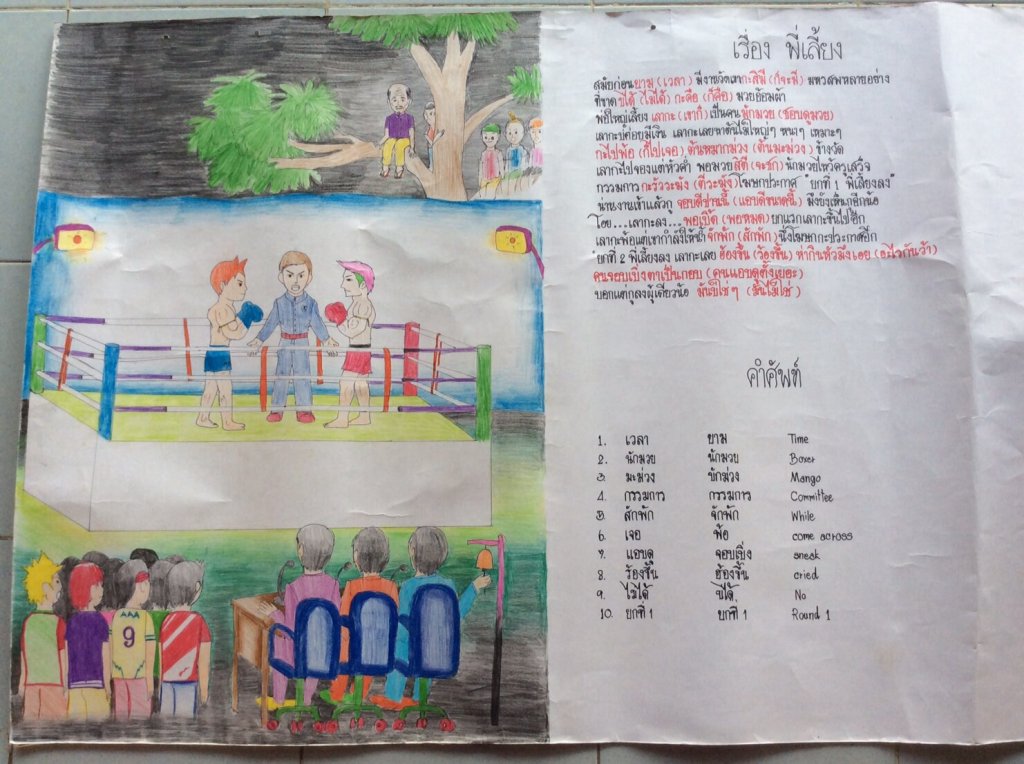 เรื่อง พี่เลี้ยง
สมัยก่อนยาม (เวลา) มีงานวัดเหากะสิมี (ก็จะมี) มหรสพหลายอย่าง
ที่ขาดบ่ได้ (ไม่ได้) กะคือ (ก็คือ) มวยอ้อมผ้า
พ่อใหญ่เลี้ยง เลากะ (เขาก็) เป็นคนมักมวย (ชอบดูมวย)
เลากะบ่ค่อยมีเงิน เลากะเลยหาต้นไม้ใหญ่ๆ หนาๆ เหมาะๆ
กะไปพ้อ (ก็ไปเจอ) ต้นหมากม่วง (ต้นมะม่วง) ข้างวัด
เลากะไปจองแต่หัวค่ำ พอมวยสิตี (จะชก) นักมวยไหว้ครูเสร็จ
กรรมการ กะรัวระฆัง (ตีระฆัง) โฆษกประกาศ "ยกที่ 1 พี่เลี้ยงลง"
ผ่านงานเข้าแล้วกู จอบดีซ่านนี่ (แอบดีขนาดนี้) มึงยังเห็นกูอีกน้อ
โอย...เลากะลง...พอเบิ้ด (พอหมด) ยกแรกเลากะขึ้นไปอีก
เลากะพ้อแต่เขากำลังให้น้ำ จักพัก (สักพัก) นึ่งโฆษกกะประกาศอีก
ยกที่ 2 พี่เลี้ยงลง เลากะเลย ฮ้องขึ้น (ร้องขึ้น) ห่ากินหัวมึงเอย (อะไรกันว้า)
คนจอบเบิ่งตาเป็นกอบ (คนแอบดูตั้งเยอะ)
บอกแต่กูลงผู้เดียวน้อ มันบ่ใช่ๆ (มันไม่ใช่)
คำศัพท์
1. เวลา ยาม Time
2. นักมวย นักมวย Boxer
3. มะม่วง บักม่วง Mango
4. กรรมการ กรรมการ Committee
5. สักพัก จักพัก While
6. เจอ พ้อ come across
7. แอบดู จอบเบิ่ง sneak
8. ร้องขึ้น ฮ้องขึ้น cried
9. ไม่ได้ บ่ได้ No
10. ยกที่ 1 ยกที่ 1 Round 1
AAA
9